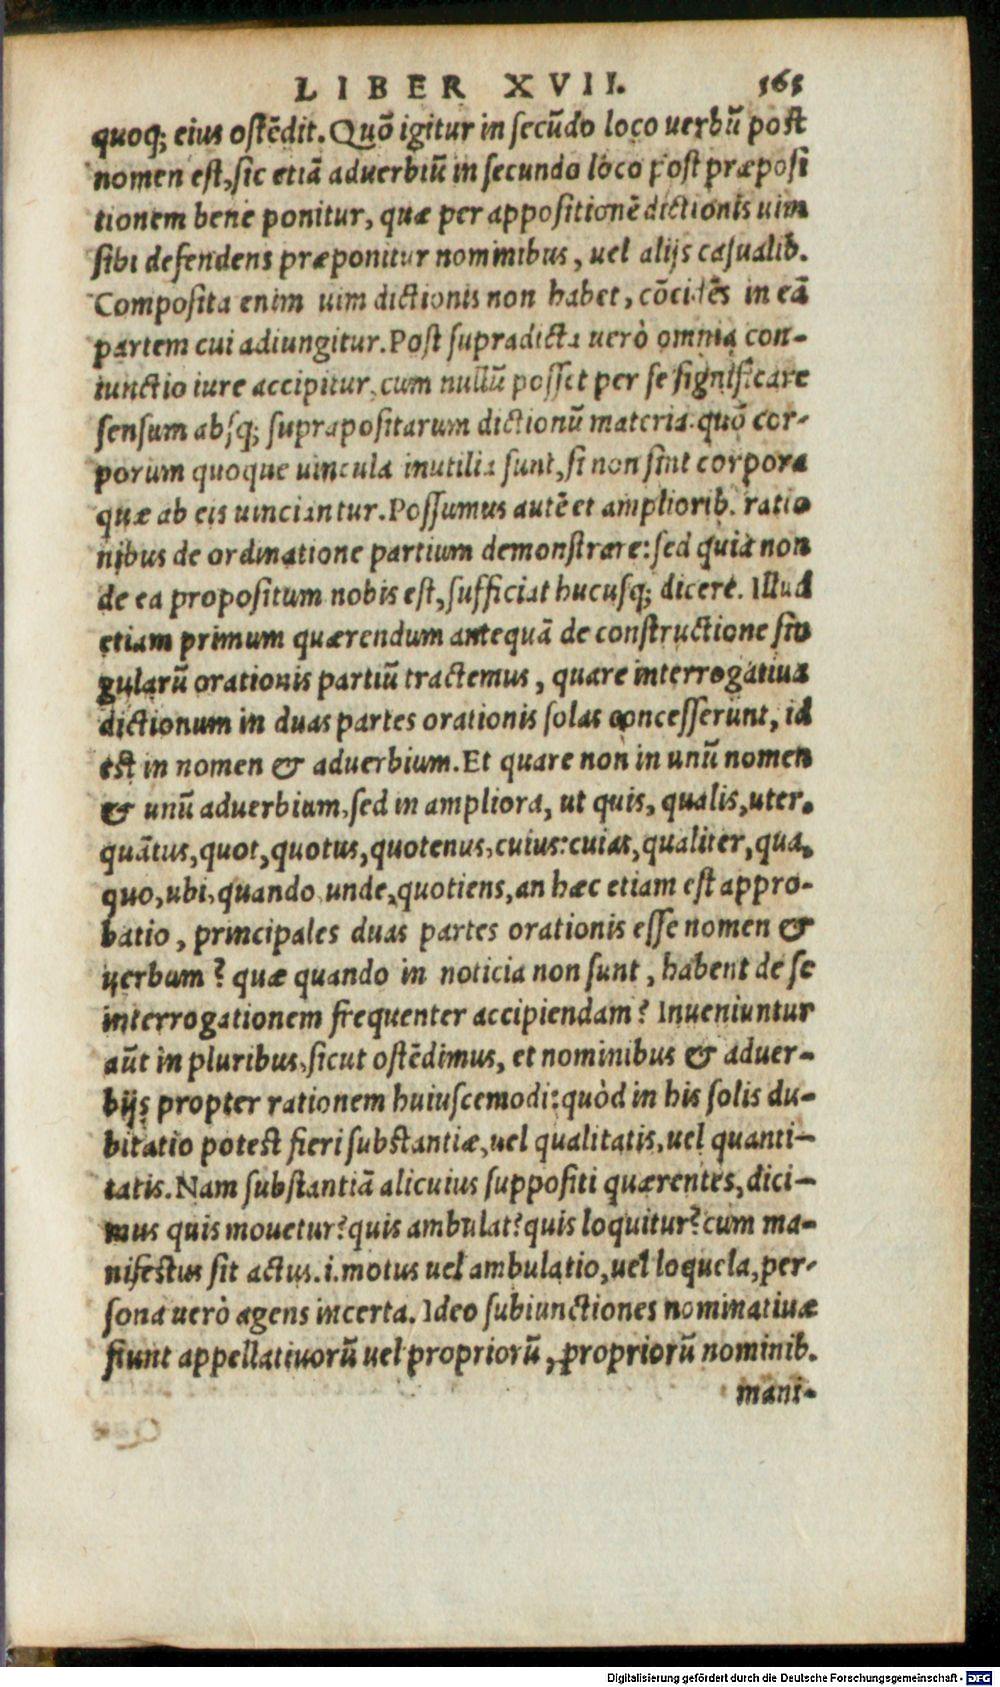 LIBER XVII. 565
quoq; eius ostēdit. Quō igitur in secūdo loco uerbū post
nomen est, sic etiā aduerbiū in secundo loco post præposi
tionem bene ponitur, quæ per appositionē dictionis uim
sibi defendens præponitur nominibus, uel alijs casualib.
Composita enim uim dictionis non habet, cōcidēs in eā
partem cui adiungitur. Post supradicta uerò omnia con-
iunctio iure accipitur, cum nullū posset per se significare
sensum absq; suprapositarum dictionū materia. quō cor-
porum quoque uincula inutilia sunt, si non sint corpora
quæ ab eis uinciantur. Possumus autē et ampliorib. ratio
nibus de ordinatione partium demonstrare: sed quia non
de ea propositum nobis est, sufficiat hucusq; dicere. Illud
etiam primum quærendum antequā de constructione sin
gularū orationis partiū tractemus, quare interrogatiua
dictionum in duas partes orationis solas concesserunt, id
est in nomen & aduerbium. Et quare non in unū nomen
& unū aduerbium, sed in ampliora, ut quis, qualis, uter.
quātus, quot, quotus, quotenus, cuius: cuias, qualiter, qua,
quo, ubi, quando, unde, quotiens, an hæc etiam est appro-
batio, principales duas partes orationis esse nomen &
uerbum? quæ quando in noticia non sunt, habent de se
interrogationem frequenter accipiendam? Inueniuntur
aūt in pluribus, sicut ostēdimus, et nominibus & aduer-
bijs propter rationem huiuscemodi: quòd in his solis du-
bitatio potest fieri substantiæ, uel qualitatis, uel quanti-
tatis. Nam substantiā alicuius suppositi quærentes, dici-
mus quis mouetur? quis ambulat? quis loquitur? cum ma-
nifestus sit actus .i. motus uel ambulatio, uel loquela, per-
sona uerò agens incerta. Ideo subiunctiones nominatiuæ
fiunt appellatiuorū uel propriorū, ꝓpriorū nominib.
mani-
Digitalisierung gefördert durch die Deutsche Forschungsgemeinschaft - DFG